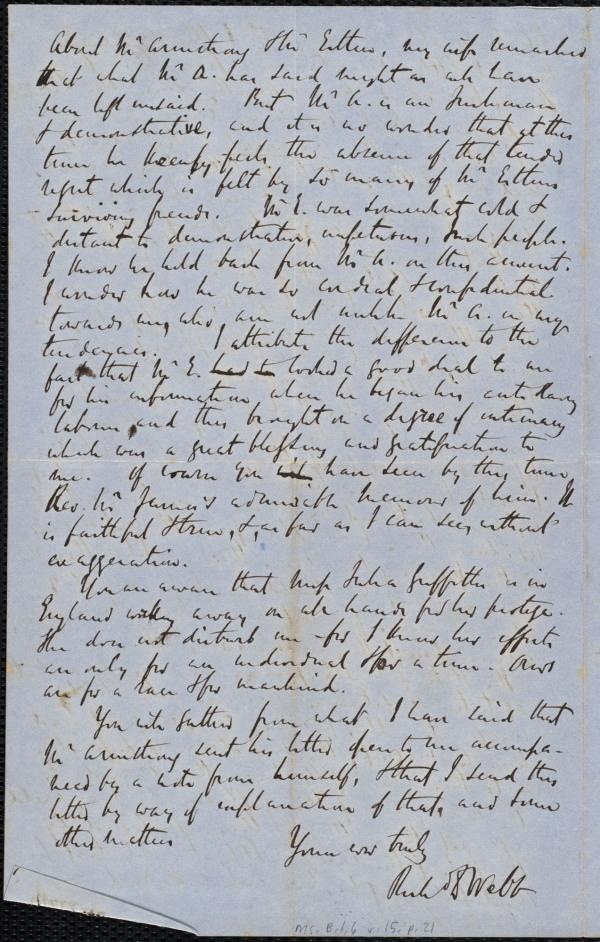 About Mr Armstrong & Mr Estlin, my wife remarked
that what Mr A. has said might as well have
been left unsaid. But Mr A. is an Irishman
& demonstrative, and it is no wonder that at this
time he keenly feels the absence of that tender
regret which is felt by so many of Mr Estlins
surviving friends. Mr E. was somewhat cold &
distant to demonstrative, impetuous, Irish people.
I know he held back from Mr A. on this account.
I wonder how he was so cordial & confidential
towards me, who am not unlike Mr A. in my
tendencies. I attribute the difference to the
fact that Mr E. had to looked a good deal to me
for his information when he began his anti slavery
labours and this brought on a degree of intimacy
which was a great blessing and gratification to
me. Of course you will have seen by this time
Rev. Mr James's admirable memoir of him. It
is faithful & true, &, as far as I can see, without
exaggeration.
You are aware that Miss Julia Griffiths is in
England working away on all hands for her protégé.
She does not disturb me - for I know her efforts
are only for an individual & for a time. Ours
are for a race & for mankind.
You will gather from what I have said that
Mr Armstrong sent his letter open to me accompa-
nied by a note from himself, & that I send this
letter by way of explanation of that, and some
other matters
Yours ever truly
Richd D Webb
Ms. B.1.6 v.15, p.21